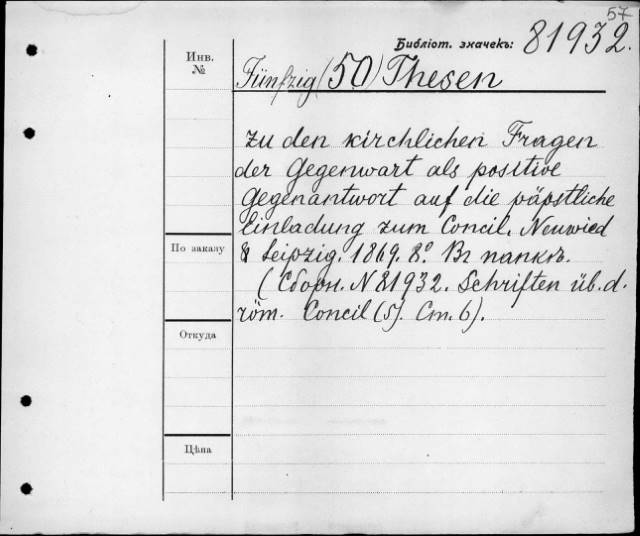 57
Библіот. значекъ: 81932.
Инв.
№
Fünfzig (50) Thesen
zu den kirchlichen Fragen
der Gegenwart als positive
Gegenantwort auf die päpstliche
Einladung zum Concil. Neuwied
& Leipzig. 1869. 8º. Въ папкѣ.
(Сборн. N 81932. Schriften üb. d.
röm. Concil (5). Ст. 6).
По заказу
Откуда
Цѣна